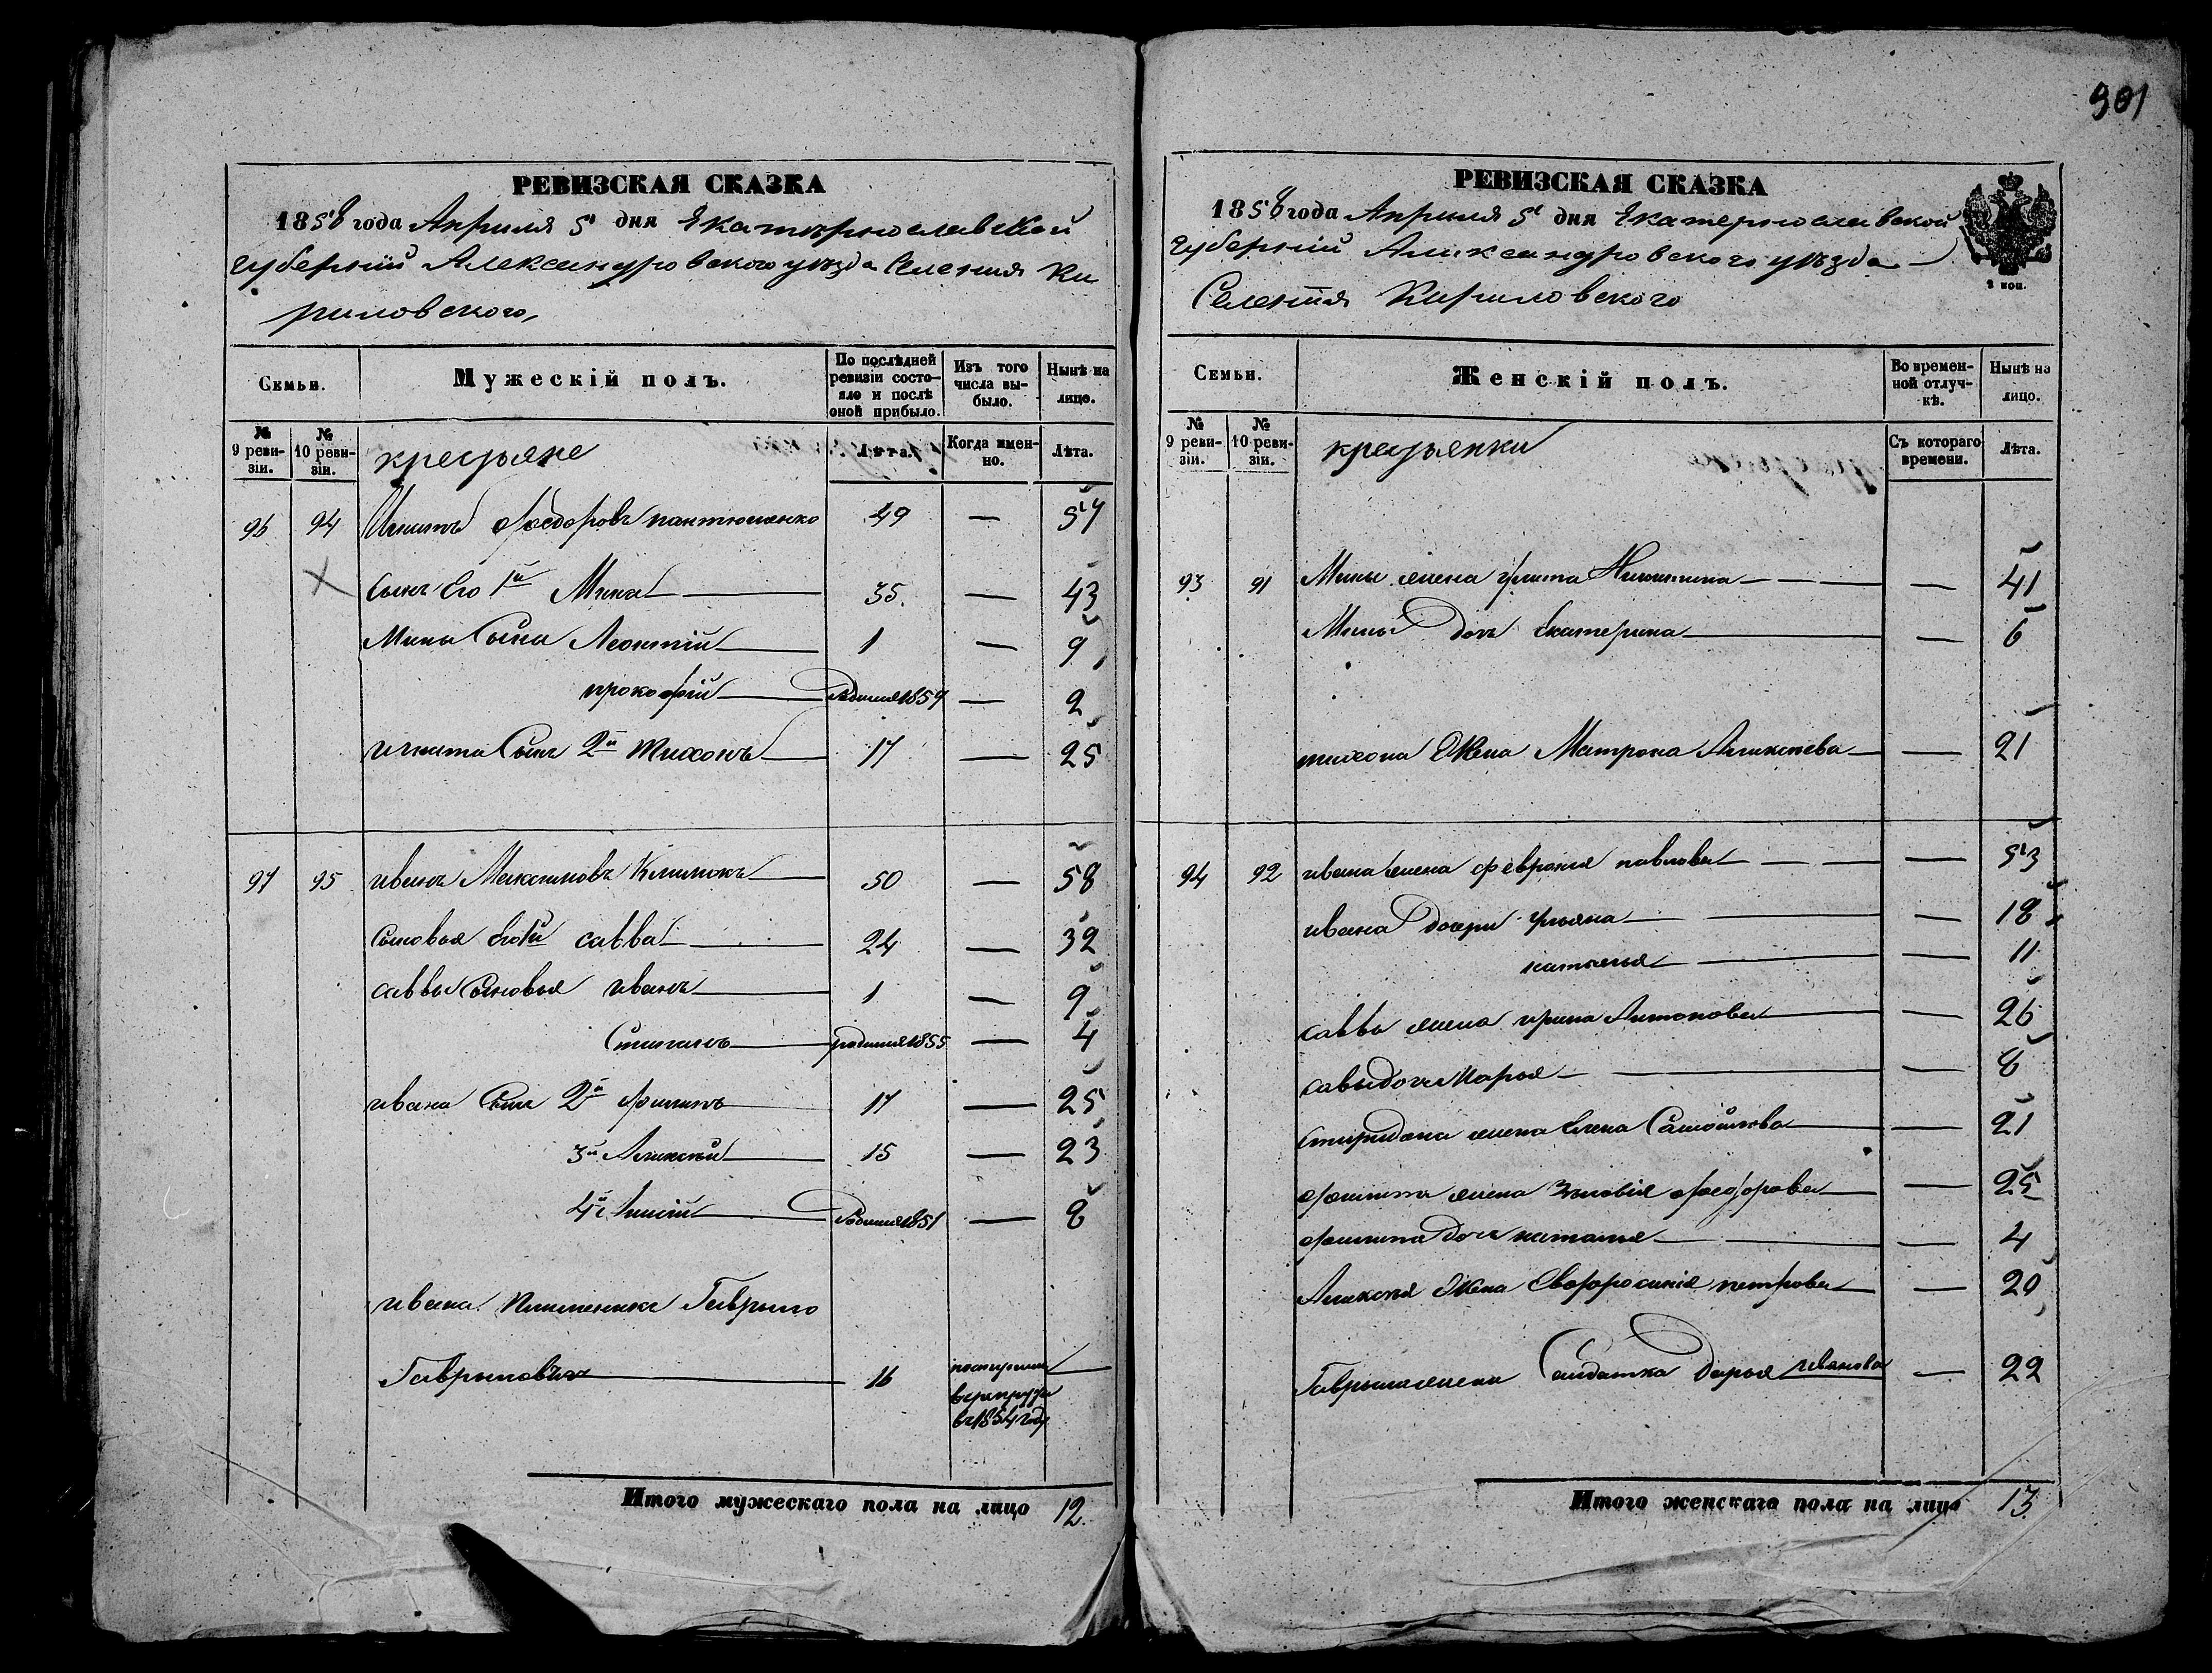 901
РЕВИЗСКАЯ СКАЗКА
1858 года Апреля 5 дня Екатеринославской
губернии Александровского уезда Селения Ки
риловского,
Семьи.
Мужескій полъ.
По послѣдней ревизіи состо- яло и послѣ оной прибыло.
Изъ того числа вы- было.
Нынѣ на лицо.
№ 9 реви- зіи.
№ 10 реви- зіи.
крестьяне
Лѣта.
Когда имен- но.
Лѣта.
96 94 Игнатъ Федоровъ пантюшенко 49 — 57
сынъ Его 1й Мина 35. — 43
Мины Сыни Леонтий 1 — 9
прокофий родился 1857 — 2
игната Сынъ 2й тихонъ 17 — 25
97 95 иванъ Максимовъ Климокъ 50 — 58
Сыновья Его 1й савва 24 — 32
саввы Сыновья иванъ 1 — 9
Степанъ родился 1855 — 4
ивана Сынъ 2й филипъ 17 — 25
3й Алексей 15 — 23
4й родился 1851 — 8
ивана племенникъ Гаврыло
Гавриловъ 16 поступилъ
в рекруты
въ 1854 году
Итого мужескаго пола на лицо 12.
РЕВИЗСКАЯ СКАЗКА
1858 года Апреля 5 дня Екатеринославской
губернии Александровского уезда
Селения Кириловского
2 коп.
Семьи.
Женскій полъ.
Во времен- ной отлуч- кѣ.
Нынѣ на лицо.
№ 9 реви- зіи.
№ 10 реви- зіи.
крестьянки
Съ котораго времени.
Лѣта.
93 91 Мины жена улита — 41
Мины дочь Екатерина — 6
тихона Жена Матрона Алексеева — 21
94 92 ивана жена феврония павлова — 53
ивана дочери ульяна — 18
наталья — 11
саввы жена ирина Антонова — 26
савы дочь Марья — 8
спиридона жена Елена Самойлова — 21
филипа жена Зиновія федорова — 25
филипа дочь наталья — 4
Алексея Жена Евфросинія петрова — 20
Гаврыла жена Салдатка Дарья иванова — 22
Итого женскаго пола на лицо 13.